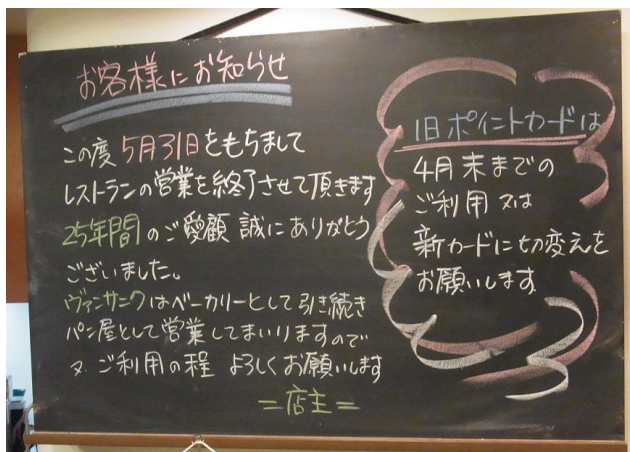 お客様にお知らせ
この度5月31日をもちまして
レストランの営業を終了させて頂きます
25年間のご愛顧 誠にありがとう
ございました。
ヴァンサンクはベーカリーとして引き続き
パン屋として営業してまいりますので
又、ご利用の程 よろしくお願いします
=店主=
旧ポイントカードは
4月末までの
ご利用又は
新カードに切変えを
お願いします